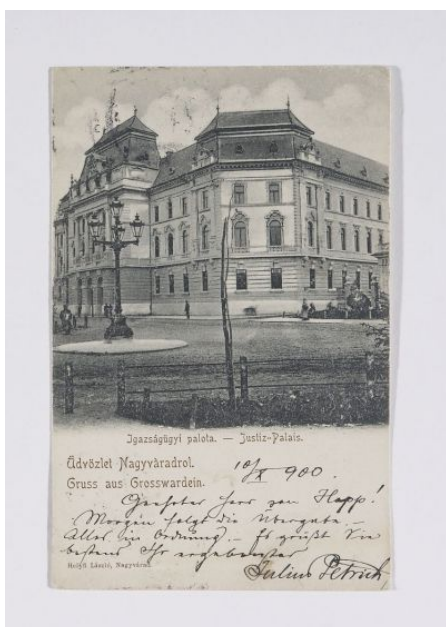 Igazságügyi palota. — Justiz-Palais.
Üdvözlet Nagyváradról.
10/X 900.
Gruss aus Grosswardein.
Geehrter Herr von Happ!
Morgen folgt die Übergabe. –
Alles in Ordnung. – Es grüßt Sie
bestens Ihr ergebenster
Helyfi László, Nagyvárad.
Julius Petrich